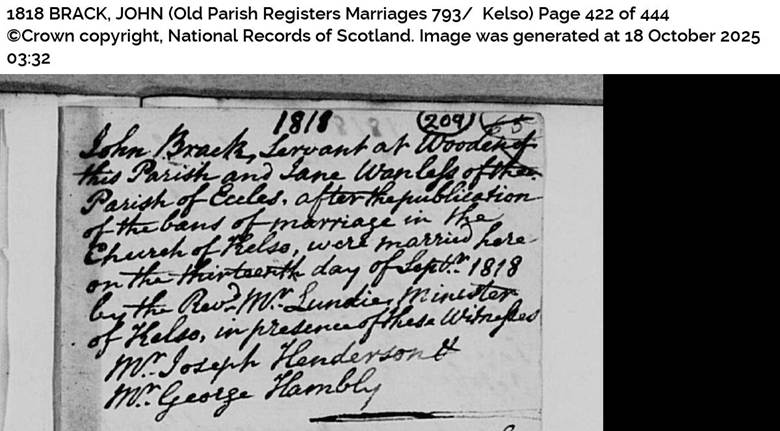 1818 BRACK, JOHN (Old Parish Registers Marriages 793/ Kelso) Page 422 of 444
©Crown copyright, National Records of Scotland. Image was generated at 18 October 2025
03:32
1818 (209) 65
John Brack, Servant at Wooden of
this Parish and Jane Wanless of the
Parish of Eccles, after the publication
of the bans of marriage in the
Church of Kelso, were married here
on the thirteenth day of Septr. 1818
by the Revd. Mr. Lundie, Minister
of Kelso, in presence of these Witnesses
Mr. Joseph Henderson &
Mr. George Hambly